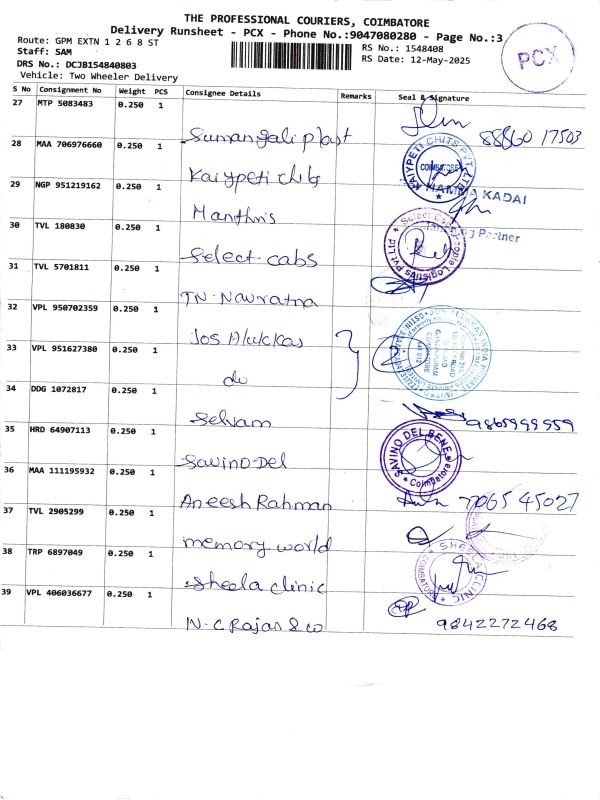 THE PROFESSIONAL COURIERS, COIMBATORE
Delivery Runsheet - PCX - Phone No.:9047080280 - Page No.:3
Route: GPM EXTN 1 2 6 8 ST
RS No.: 1548408
Staff: SAM
RS Date: 12-May-2025
DRS No.: DCJB154840803
Vehicle: Two Wheeler Delivery
PCX
S No Consignment No Weight PCS Consignee Details Remarks Seal & Signature
27 MTP 5083483 0.250 1
Sumangali plast 88860 17503
28 MAA 706976660 0.250 1
Kaiypeti chits
KAIYPETI CHITS PVT. LTD.
COIMBATORE
29 NGP 951219162 0.250 1
Manthris
HAMMA KADAI
Partner
30 TVL 180830 0.250 1
Select cabs
31 TVL 5701811 0.250 1
TN. Navratna
32 VPL 950702359 0.250 1
Jos Alukkas
33 VPL 951627380 0.250 1
do
34 DDG 1072817 0.250 1
Selvam 9865999959
35 HRD 64907113 0.250 1
Savino-Del
SAVINO DEL BENE
Coimbatore
36 MAA 111195932 0.250 1
Aneesh Rahman
37 TVL 2905299 0.250 1
memory world
38 TRP 6897049 0.250 1
Sheela clinic
SHEELA CLINIC
COIMBATORE
39 VPL 406036677 0.250 1
N. C Rajan & co 9842272468